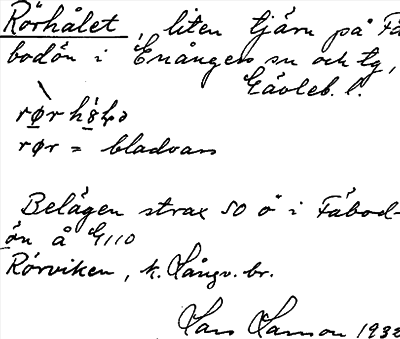 Rörhålet, liten tjärn på Få
bodön i Enångers sn och tg,
Gävleb. l.
rør =  bladvass
Belägen strax SO ö i Fäbod-
ön å G110
Rörviken, k. Långv. br.
Lars Larsson 1932